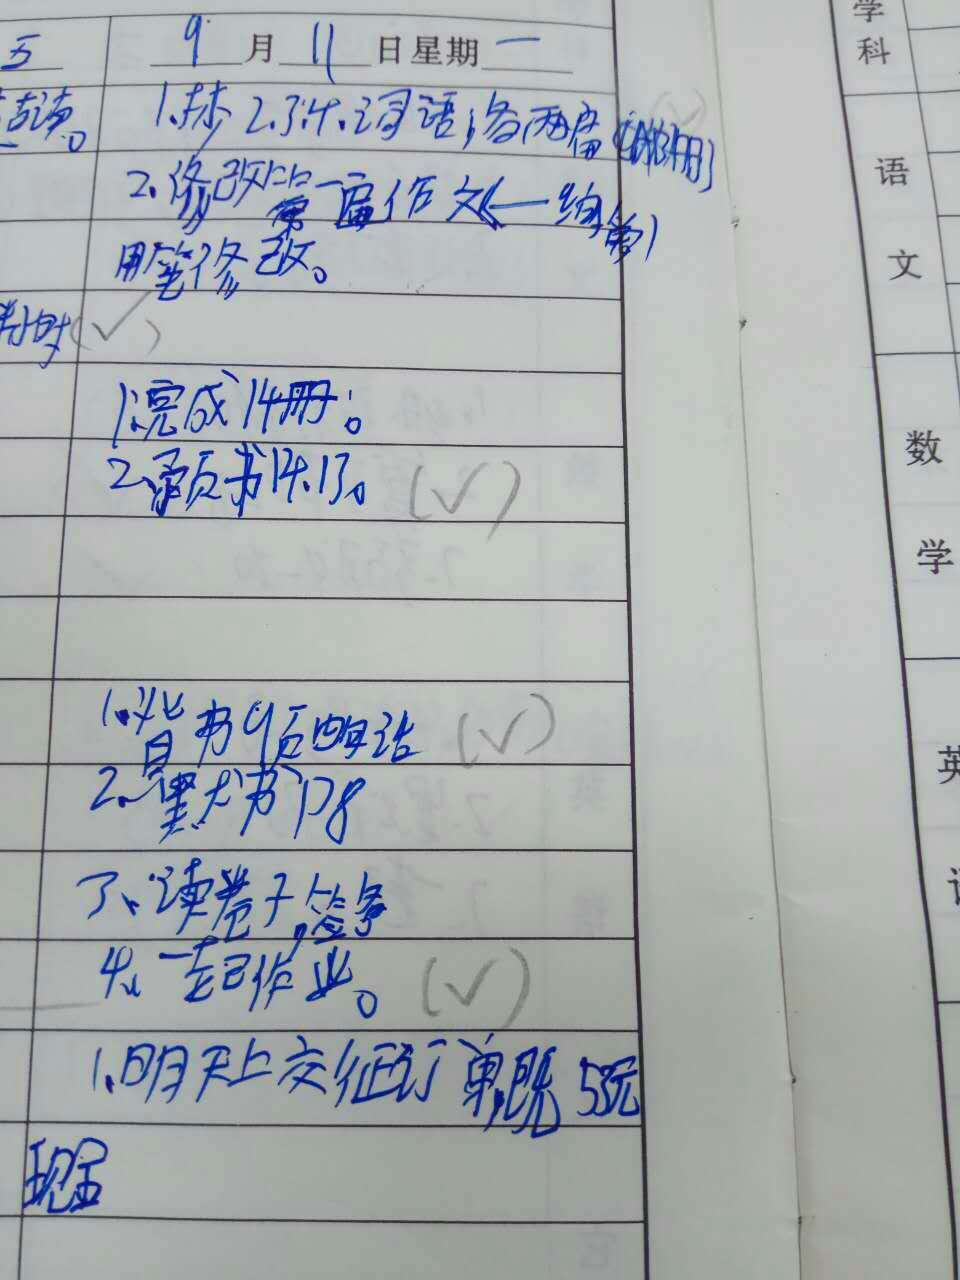 五
9月11日星期一
学科
1.抄2.3.4.词语,各两篇
2.修改第一篇作文(一
用笔修改。
语文
(√)
1.完成14册。
2.预书14.15。(√)
数学
1.背书9后四句话(√)
2.默书P8
3.读卷子,签字
4.一起作业。(√)
英
1.明天上交征订单,既55元
现金